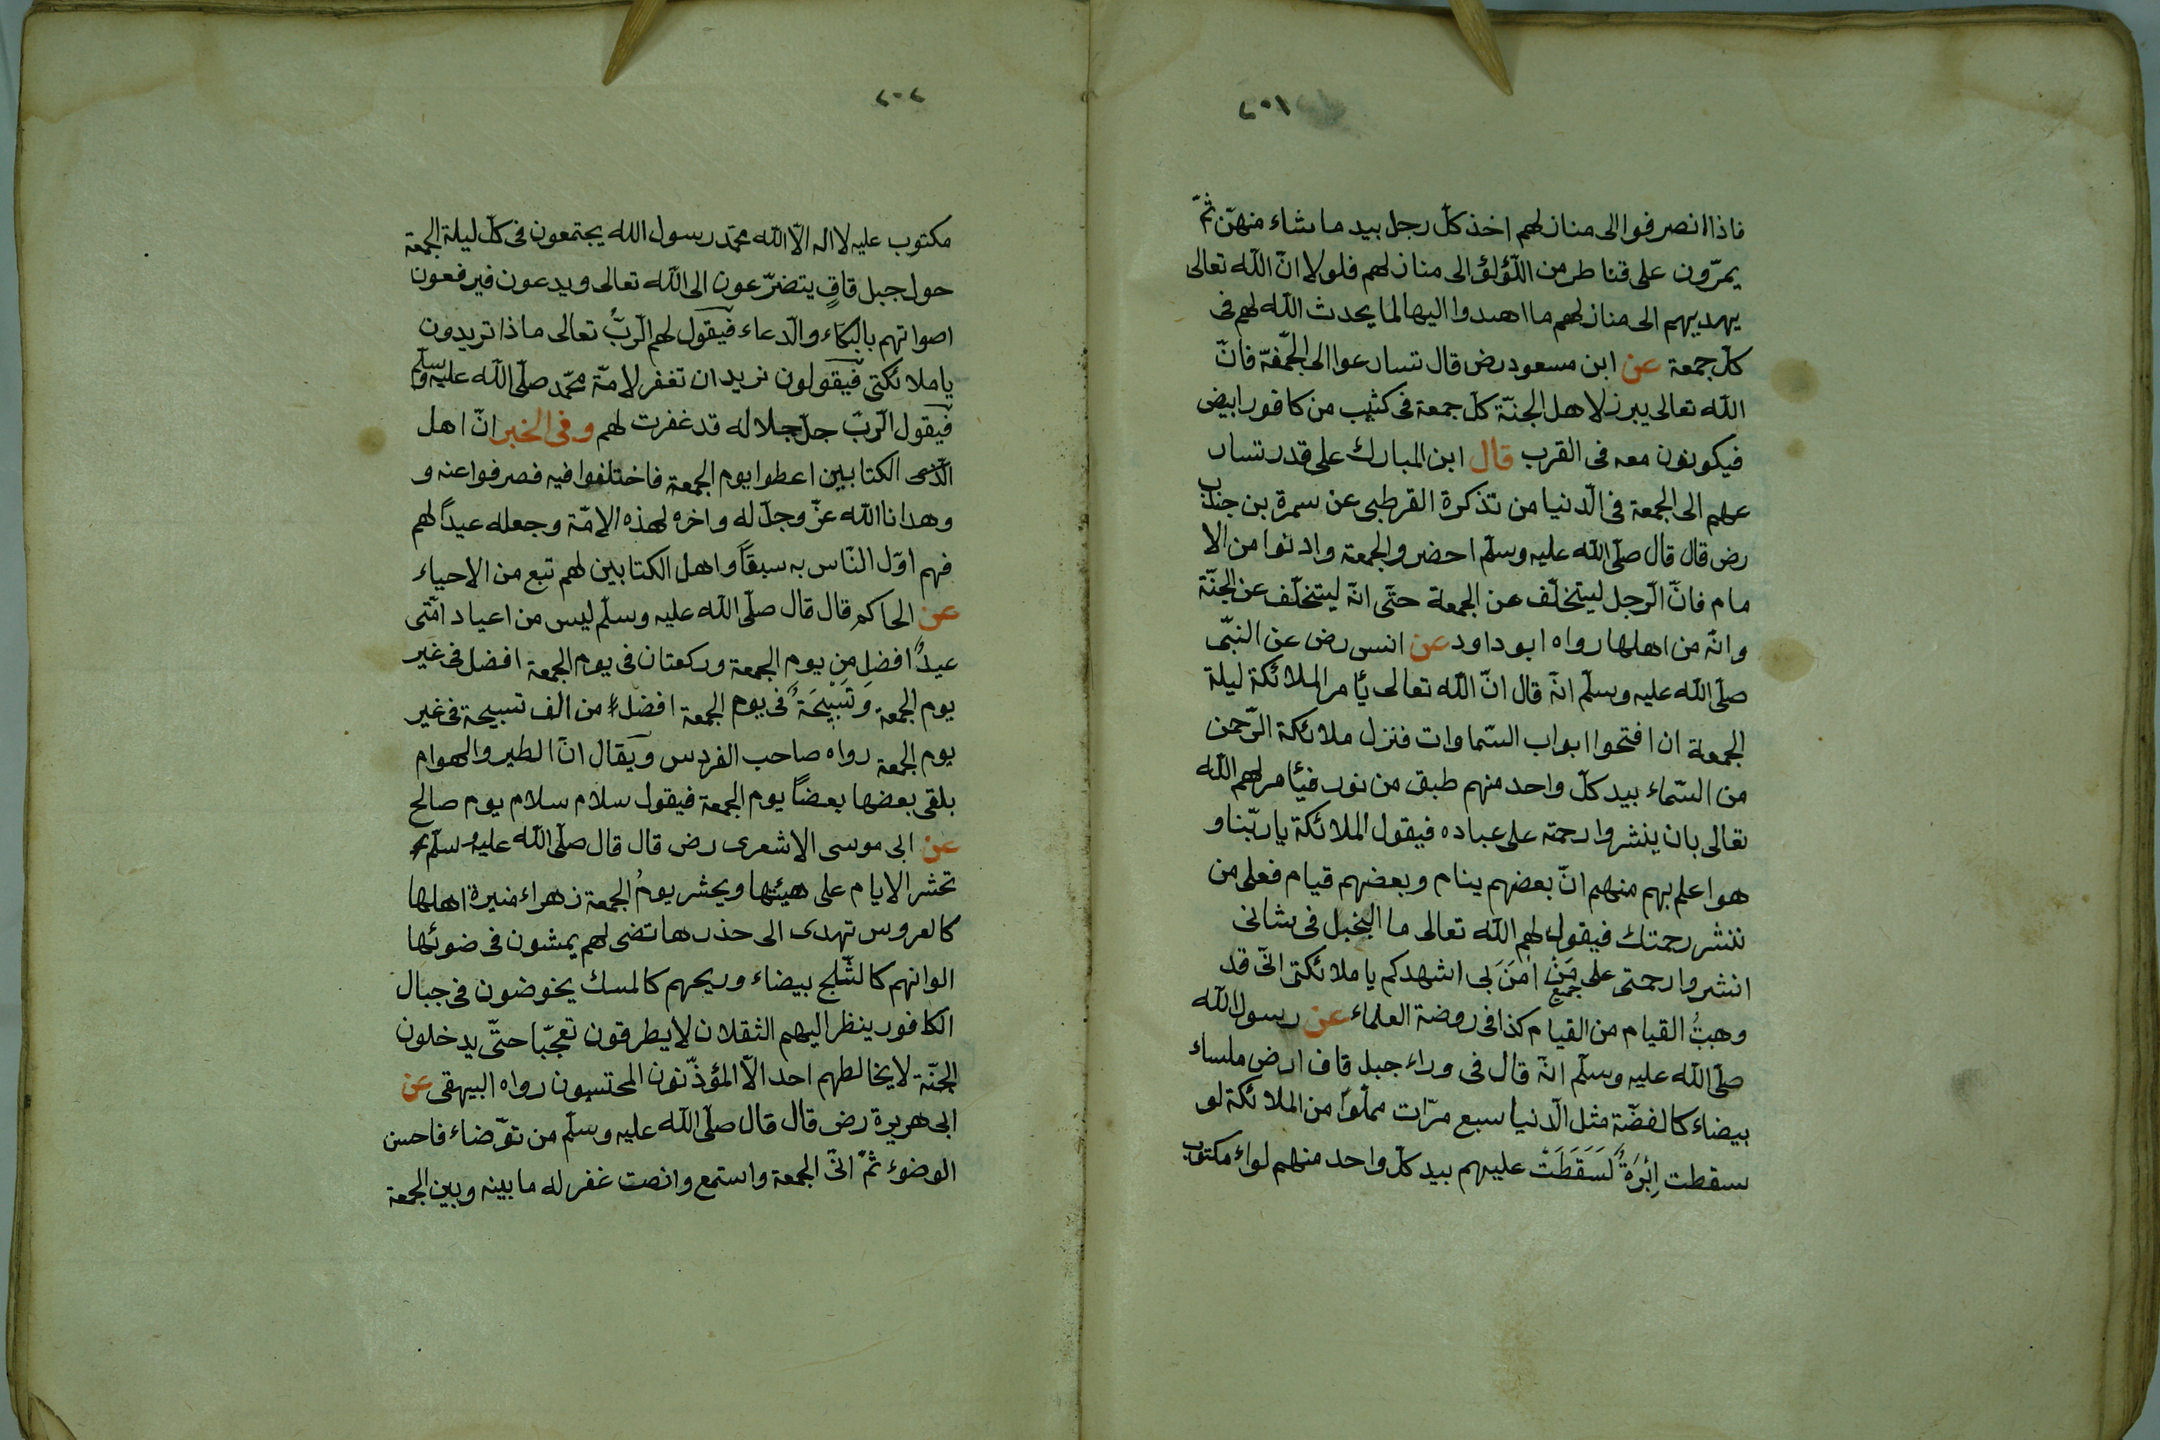 فاذا انصرفوا الى منازلهم اخذ كلّ رجل بيد ما شاء منهنّ ثمّ
يمرّون على قناطر من اللّؤلؤ الى منازلهم فلولا انّ اللّه تعالى
يهديهم الى منازلهم ما اهتدوا اليها لما يحدث اللّه لهم فى
كلّ جمعة عن ابن مسعود رض قال تسارعوا الى الجمعة فانّ
اللّه تعالى يبرز لاهل الجنّة كلّ جمعة فى كثيب من كافور ابيض
فيكونون معه فى القرب قال ابن المبارك على قدر تسار
عهم الى الجمعة فى الدّنيا من تذكرة القرطبى عن سمرة بن جندب
رض قال قال صلّى اللّه عليه وسلّم احضر والجمعة وادنوا من الا
مام فانّ الرّجل ليتخلّف عن الجمعة حتّى انّه ليتخلّف عن الجنّة
وانّه من اهلها رواه ابو داود عن انس رض عن النبّى
صلّى اللّه عليه وسلّم انّه قال انّ اللّه تعالى يأمر الملائكة ليلة
الجمعة ان افتحوا ابواب السّماوات فنزل ملائكة الرّحمن
من السّماء بيد كلّ واحد منهم طبق من نور فيأمر لهم اللّه
تعالى بان ينشروا رحمته على عباده فيقول الملائكة يا ربّنا و
هو اعلم بهم منهم انّ بعضهم ينام وبعضهم قيام فعلى من
ننشر رحمتك فيقول لهم اللّه تعالى ما البخيل فى شانى
انشروا رحمتى على جميع مَنْ اٰمَنَ بى اشهدكم يا ملائكتى انّى قد
وهبتُ القيام من القيام كذا فى روضة العلماء عن رسول اللّه
صلّى اللّه عليه وسلّم انّه قال فى وراء جبل قاف ارض ملساء
بيضاء كالفضّة مثل الدّنيا سبع مرّات مملوّا من الملائكة لو
سقطت اِبْرَةٌ لَسَقَطَتْ عليهم بيد كلّ واحد منهم لواء مكتوب
٢٠٢
مكتوب عليه لا اله الّا اللّه محمّد رسول اللّه يجتمعون فى كلّ ليلة الجمعة
حول جبل قافٍ يتضرّعون الى اللّه تعالى ويدعون فيرفعون
اصواتهم بالبكاء والدّعاء فيقول لهم الرّبّ تعالى ماذا تريدون
يا ملائكتى فيقولون نريد ان تغفر لامّة محمّد صلّى اللّه عليه وسلّم
فيقول الرّبّ جلّ جلاله قد غفرت لهم وفى الخبر انّ اهل
الكتابين اعطوا يوم الجمعة فاختلفوا فيه فصرفوا عنه و
وهدانا اللّه عزّ وجلّ له واخره لهذه الامّة وجعله عيداً لهم
فهم اوّل النّاس به سبقاً واهل الكتابين لهم تبع من الاحياء
عن الحاكم قال قال صلّى اللّه عليه وسلّم ليس من اعياد امّتى
عيدٌ افضل من يوم الجمعة وركعتان فى يوم الجمعة افضل فى غير
يوم الجمعة وَتَسْبِيْحَةٌ فى يوم الجمعة افضل من الف تسبيحة فى غير
يوم الجمعة رواه صاحب الفردس ويقال انّ الطير والهوام
يلقى بعضها بعضاً يوم الجمعة فيقول سلام سلام يوم صالح
عن ابى موسى الاشعرى رض قال قال صلّى اللّه عليه وسلّم
تحشر الايام على هيئتها ويحشر يومُ الجمعة زهراء منيرة اهلها
كالعروس تهدى الى حذرها تضى لهم يمشون فى ضوئها
الوانهم كالثّلج بيضاء وريحهم كالمسك يخوضون فى جبال
الكافور ينظر اليهم الثقلان لا يطرقون تعجّبا حتّى يدخلون
الجنّة لا يخالطهم احد الّا المؤذّنون المحتسبون رواه البيهقى عن
ابى هريرة رض قال قال صلّى اللّه عليه وسلّم من توّضاء فاحسن
الوضوء ثمّ اتى الجمعة واستمع وانصت غفر له ما بينه وبين الجمعة